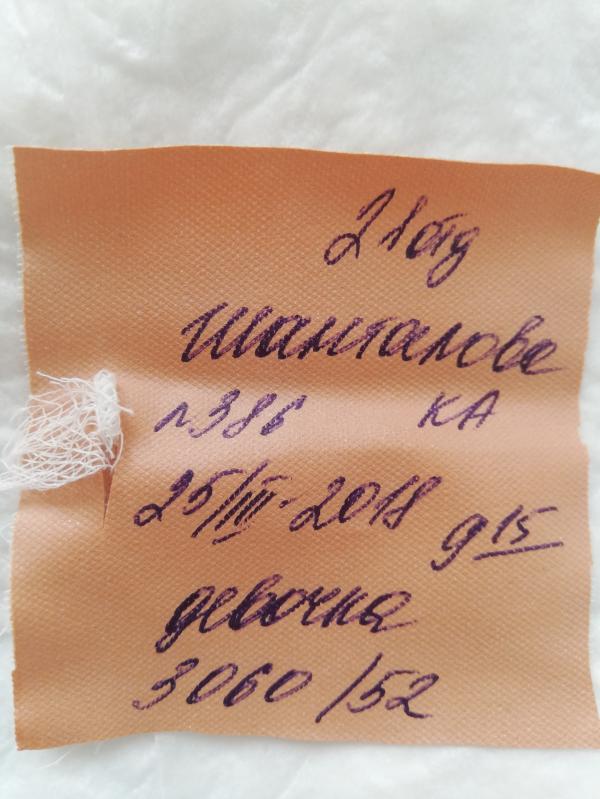 21 отд
Шамталова
№386 КА
25/III-2018 9 15
девочка
3060/52